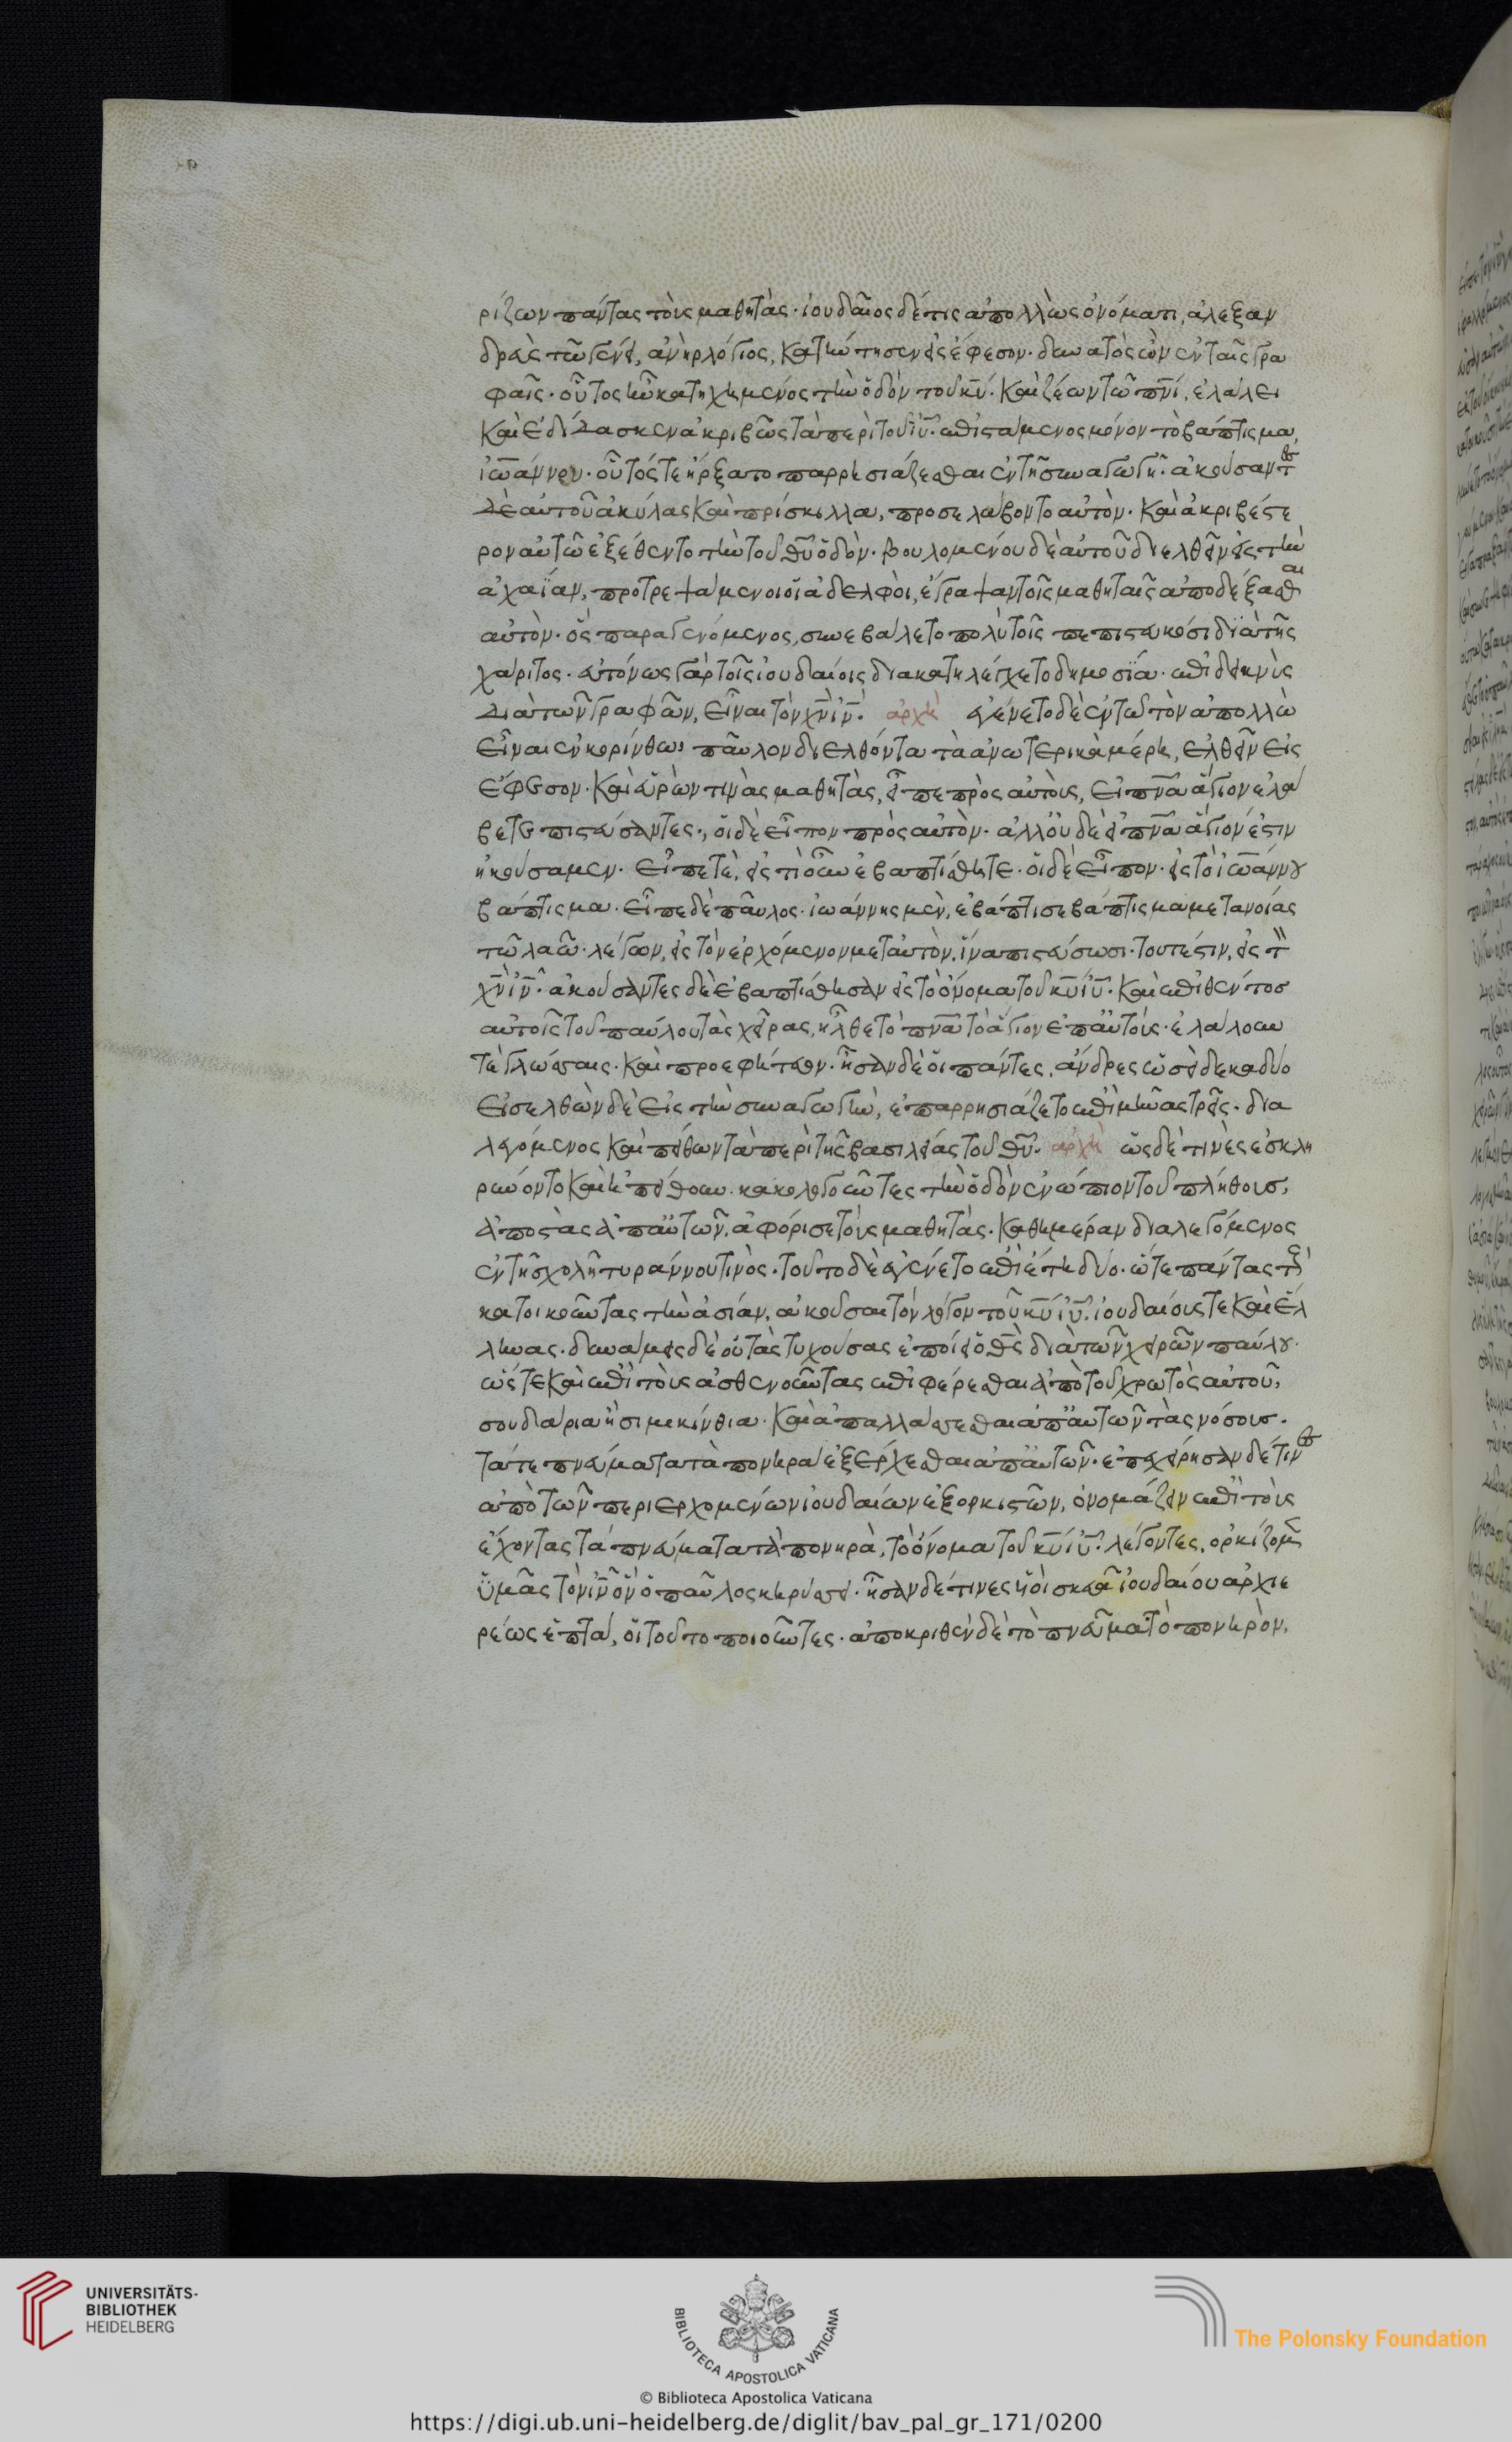 ρίζων πάντας τοὺς μαθητάς· ἰουδαῖος δέ τις ἀπολλὼς ὀνόματι, ἀλεξαν
δρεὺς τῶ γένει, ἀνὴρ λόγιος, κατήντησεν εἰς ἔφεσον· δυνατὸς ὢν ἐν ταῖς γρα
φαῖς· οὗτος ἦν κατηχημένος τὴν ὁδὸν τοῦ κυ̅· καὶ ζέων τῶ πνι̅, ἐλάλει
καὶ ἐδίδασκεν ἀκριβῶς τὰ περὶ τοῦ ιυ̅· ἐπιστάμενος μόνον τὸ βάπτισμα
ἰωάννου· οὗτός τε ἤρξατο παρρησιάζεσθαι ἐν τῆ συναγωγῆ· ἀκούσαντες
δὲ αὐτοῦ ἀκύλας καὶ πρίσκιλλα, προσελάβοντο αὐτὸν· καὶ ἀκριβέστε
ρον αὐτῶ ἐξέθεντο τὴν τοῦ θυ̅ ὁδὸν· βουλομένου δὲ αὐτοῦ διελθεῖν εἰς τὴν
ἀχαΐαν, προτρεψάμενοι οἱ ἀδελφοὶ, ἔγραψαν τοῖς μαθηταῖς ἀποδέξασθαι
αὐτὸν· ὃς παραγενόμενος, συνεβάλετο πολὺ τοῖς πεπιστευκόσι διὰ τῆς
χάριτος· εὐτόνως γὰρ τοῖς ἰουδαίοις διακατηλέγχετο δημοσία· ἐπιδεικνὺς
διὰ τῶν γραφῶν, εἶναι τὸν χν̅ ιν̅· ἀρχὴ ἐγένετο δὲ ἐν τῶ τὸν ἀπολλὼ
εἶναι ἐν κορίνθω, παῦλον διελθόντα τὰ ἀνωτερικὰ μέρη, ἐλθεῖν εἰς
ἔφεσον· καὶ εὑρών τινὰς μαθητὰς, εἶπε πρὸς αὐτοὺς, εἰ πνα̅ ἅγιον ἐλά
βετε πιστεύσαντες·, οἱ δὲ εἶπον πρὸς αὐτὸν· ἀλλ' οὐδὲ εἰ πνα̅ ἅγιόν ἐστιν
ἠκούσαμεν· εἶπέ τε, εἰς τί οὖν ἐβαπτίσθητε· οἱ δὲ εἶπον· εἰς τὸ ἰωάννου
βάπτισμα· εἶπε δὲ παῦλος· ἰωάννης μὲν, ἐβάπτισε βάπτισμα μετανοίας
τῶ λαῶ· λέγων, εἰς τὸν ἐρχόμενον μετ' αὐτὸν, ἵνα πιστεύσωσι· τουτέστιν, εἰς τὸν
χν̅ ιν̅· ἀκούσαντες δὲ ἐβαπτίσθησαν εἰς τὸ ὄνομα τοῦ κυ̅ ιυ̅· καὶ ἐπιθέντος
αὐτοῖς τοῦ παύλου τὰς χεῖρας, ἦλθε τὸ πνα̅ τὸ ἅγιον ἐπ' αὐτούς· ἐλάλουν
τὲ γλώσσαις· καὶ προεφήτευον· ἦσαν δὲ οἱ πάντες, ἄνδρες ὡσεὶ δεκαδύο
εἰσελθὼν δὲ εἰς τὴν συναγωγὴν, ἐπαρρησιάζετο ἐπὶ μῆνας τρεῖς· δια
λεγόμενος καὶ πείθων τὰ περὶ τῆς βασιλείας τοῦ θυ̅· ἀρχὴ ὡς δέ τινες ἐσκλη
ρύνοντο καὶ ἠπείθουν· κακολογοῦντες τὴν ὁδὸν ἐνώπιον τοῦ πλήθους,
ἀποστὰς ἀπ' αὐτῶν, ἀφόρισε τοὺς μαθητὰς· καθημέραν διαλεγόμενος
ἐν τῆ σχολῆ τυράννου τινὸς· τοῦτο δὲ ἐγένετο ἐπὶ ἔτη δύο· ὥστε πάντας τοὺς
κατοικοῦντας τὴν ἀσίαν, ἀκοῦσαι τὸν λόγον τοῦ κυ̅ ιυ̅· ἰουδαίους τε καὶ ἕλ
ληνας· δυνάμεις δὲ οὐ τὰς τυχούσας ἐποίει ὁ θς̅ διὰ τῶν χειρῶν παύλου·
ὥστε καὶ ἐπὶ τοὺς ἀσθενοῦντας ἐπιφέρεσθαι ἀπὸ τοῦ χρωτὸς αὐτοῦ,
σουδάρια ἢ σιμικίνθια· καὶ ἀπαλλάσσεσθαι ἀπ' αὐτῶν τὰς νόσους·
τά τε πνεύματα τὰ πονηρὰ ἐξέρχεσθαι ἀπ' αὐτῶν· ἐπεχείρησαν δέ τινες
ἀπὸ τῶν περιερχομένων ἰουδαίων ἐξορκιστῶν, ὀνομάζειν ἐπὶ τοὺς
ἔχοντας τὰ πνεύματα τὰ πονηρὰ, τὸ ὄνομα τοῦ κυ̅ ιυ̅· λέγοντες, ὁρκίζομεν
ὑμᾶς τὸν ιν̅ ὃν ὁ παῦλος κηρύσσει· ἦσαν δέ τινες υἱοὶ σκευᾶ ἰουδαίου ἀρχιε
ρέως ἑπτά, οἱ τοῦτο ποιοῦντες· ἀποκριθὲν δὲ τὸ πνεῦμα τὸ πονηρὸν,
UNIVERSITÄTS-
BIBLIOTHEK
HEIDELBERG
BIBLIOTECA APOSTOLICA VATICANA
The Polonsky Foundation
© Biblioteca Apostolica Vaticana
https://digi.ub.uni-heidelberg.de/diglit/bav_pal_gr_171/0200